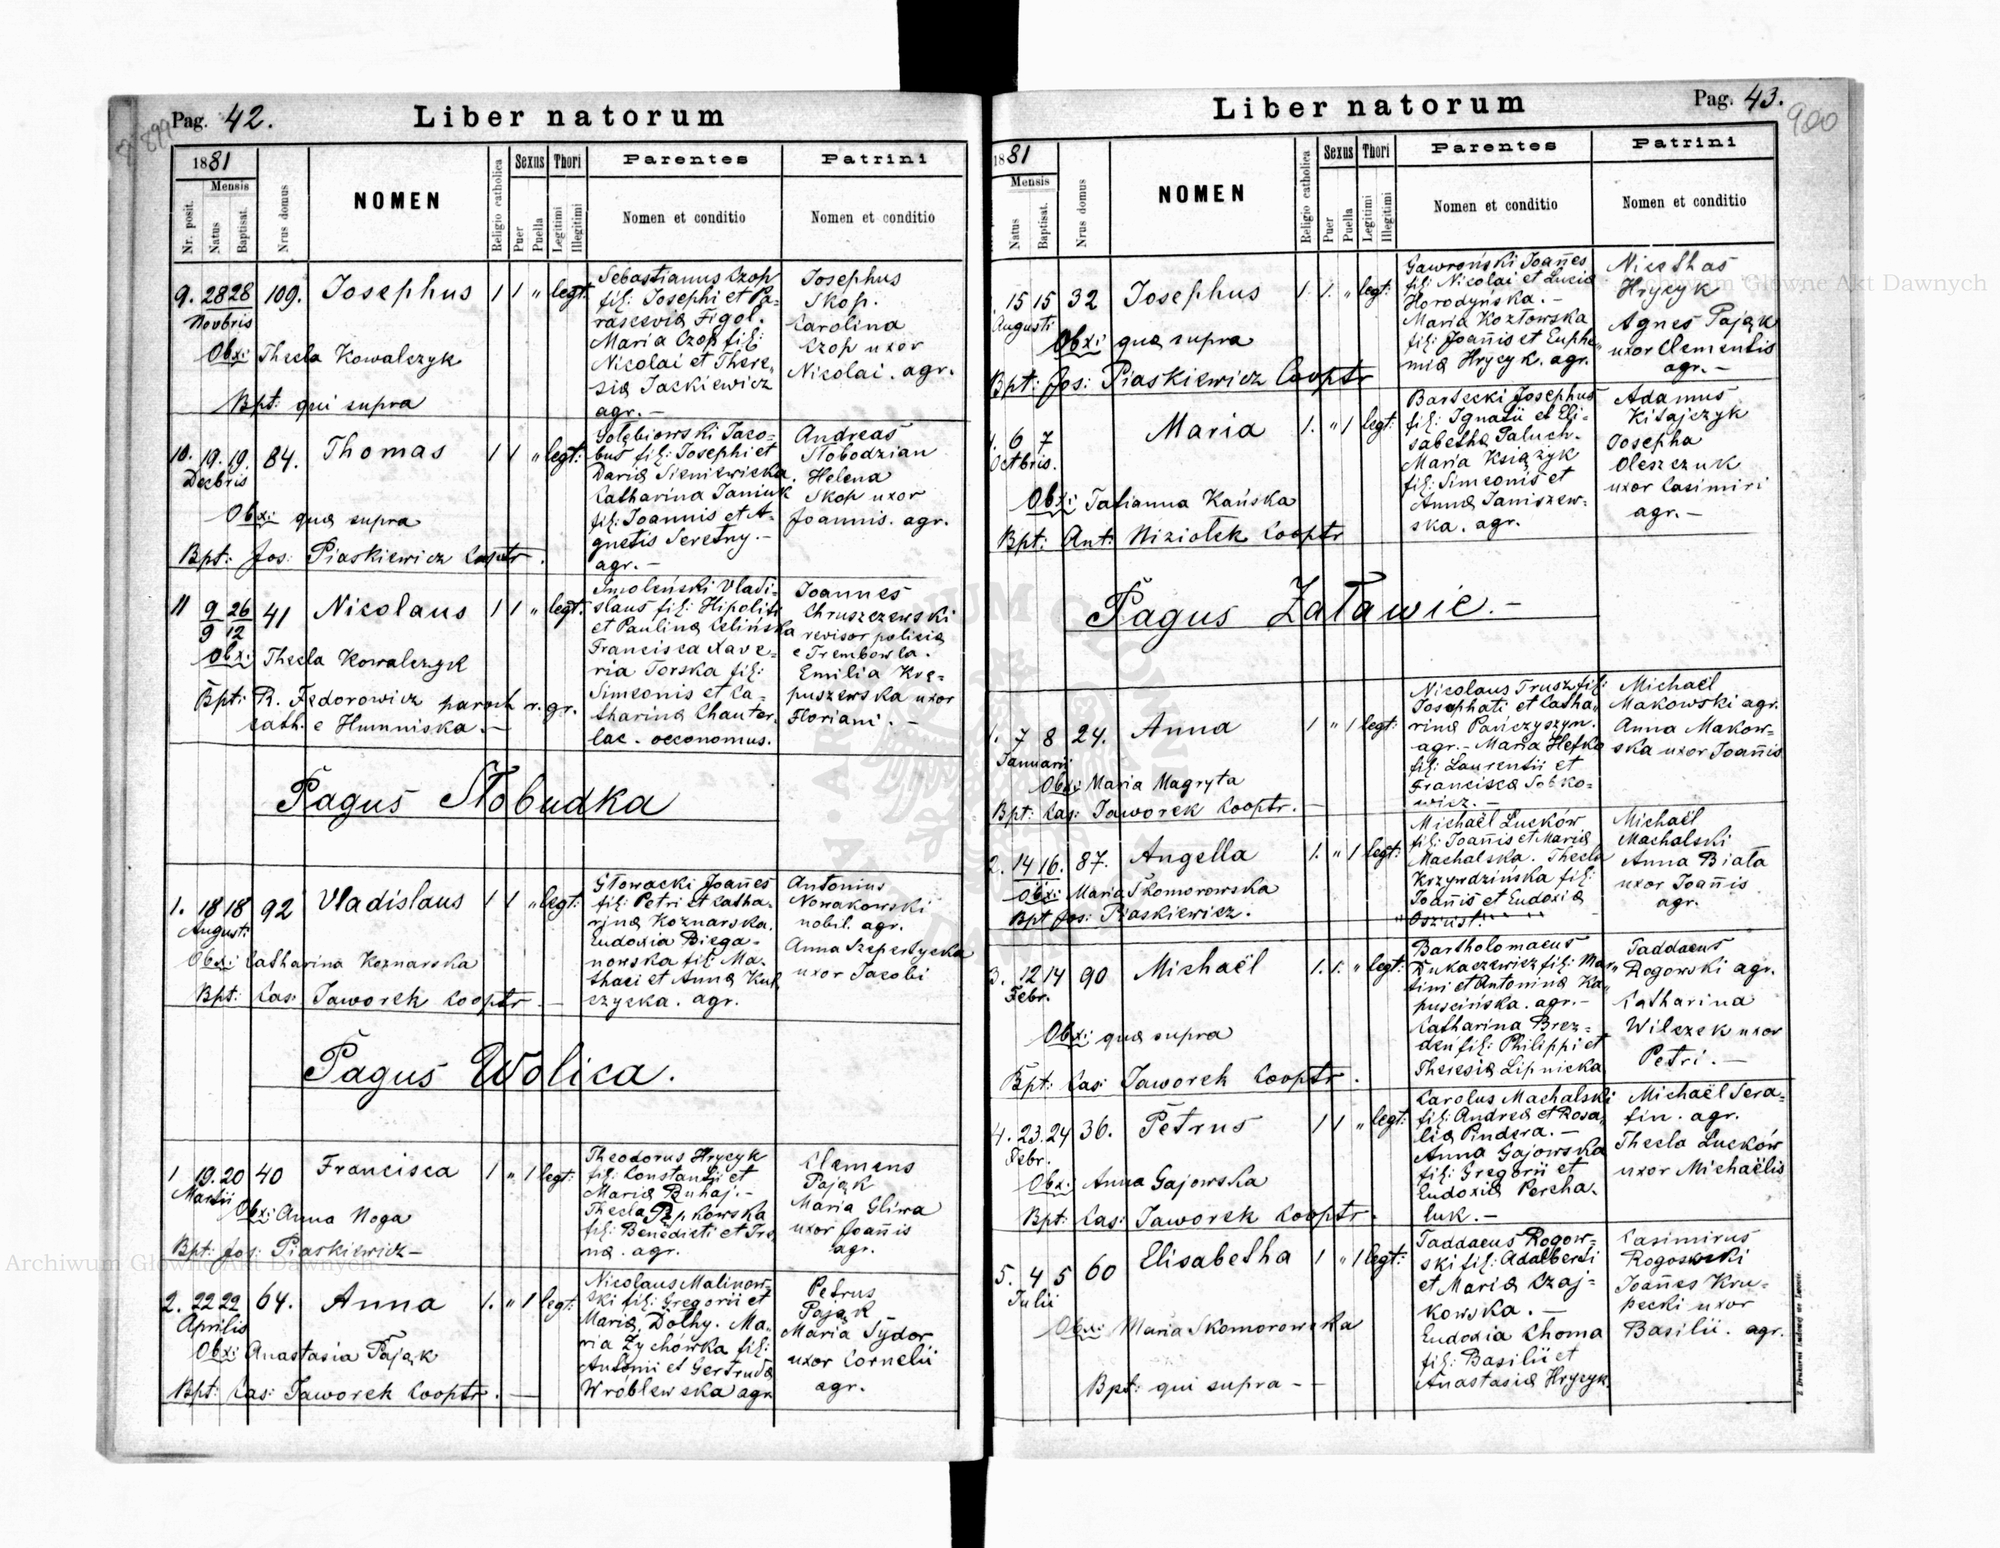 Pag. 42.
Liber natorum
1881
Mensis
Nr. posit.
Natus
Baptisat.
Nrus domus
NOMEN
Religio catholica
Sexus
Puer
Puella
Thori
Legitimi
Illegitimi
Parentes
Nomen et conditio
Patrini
Nomen et conditio
9. 28 28 109. Josephus 1 1 " legt:
Novbris
Obx: Thecla Kowalczyk
Bpt: qui supra
Sebastianus Czop
fil: Josephi et Pa-
rascevia Figol.
Maria Czop fil:
Nicolai et There-
sia Jackiewicz
agr. —
Josephus
Skop.
Carolina
Czop uxor
Nicolai. agr.
10. 19. 19. 84. Thomas 1 1 " legt:
Decbris
Obx: qua supra
Bpt: Jos: Piaskiewicz Cooptr.
Gołębiowski Jaco-
bus fil: Josephi et
Daria Sieniewicka.
Catharina Janiuk
fil: Joannis et A-
gnetis Seretny. —
agr. —
Andreas
Słobodzian
Helena
Skop uxor
Joannis. agr.
11 9/9 26/12 41 Nicolaus 1 1 " legt.
Obx: Thecla Kowalczyk
Bpt: R. Fedorowicz paroch r. gr.
cath. e Humniska. —
Smoleński Vladi-
slaus fil: Hipoliti
et Paulina Celińska
Francisca Xave-
ria Torska fil:
Simeonis et Ca-
tharina Chauter-
lac. oeconomus.
Joannes
Chruszczewski
revisor policia
e Trembowla.
Emilia Kre-
puszewska uxor
Floriani. —
Pagus Słobudka
1. 18 18 92 Vladislaus 1 1 " legt:
Augusti
Obx: Catharina Koznarska
Bpt: Cas: Jaworek Cooptr. —
Głowacki Joañes
fil: Petri et Catha-
rina Koznarska.
Eudoxia Biega-
nowska fil: Ma-
thaei et Anna Kul
czycka. agr.
Antonius
Nowakowski
nobil. agr.
Anna Szepertycka
uxor Jacobi
Pagus Wolica.
1 19. 20 40 Francisca 1 " 1 legt:
Martii
Obx: Anna Noga
Bpt: Jos: Piaskiewicz —
Theodorus Hrycyk
fil: Constantii et
Maria Buhaj. —
Thecla
fil: Benedicti et Ire
na. agr.
Clemens
Pająk
Maria Gliwa
uxor Joañis
agr.
2. 22 22 64. Anna 1. " 1 legt:
Aprilis
Obx: Anastasia Pająk
Bpt: Cas: Jaworek Cooptr. —
Nicolaus Malinow-
ski fil: Gregorii et
Maria Dołhy. Ma-
ria Zychówka fil:
Antoni et Gertruda
Wróblewska agr.
Petrus
Pająk
Maria Sydor
uxor Cornelii
agr.
Liber natorum
Pag. 43.
900
1881
Mensis
Natus
Baptisat.
Nrus domus
NOMEN
Religio catholica
Sexus
Puer
Puella
Thori
Legitimi
Illegitimi
Parentes
Nomen et conditio
Patrini
Nomen et conditio
15 15 32 Josephus 1. 1. " legt:
Augusti
Obx: qua supra
Bpt: Jos: Piaskiewicz Cooptr
Gawroński Joañes
fil: Nicolai et Lucia
Horodyńska. —
Maria Kozłowska
fil: Joañis et Euphe-
mia Hrycyk. agr.
Nicethas
Hrycyk
Agnes Pająk
uxor Clementis
agr. —
1. 6 7 Maria 1. " 1 legt:
Octbris.
Obx: Tatianna Kańska
Bpt: Ant: Niziołek Cooptr
Bartecki Josephus
fil: Ignatii et Eli-
sabetha Paluch.
Maria Książyk
fil: Simeonis et
Anna Janiszew-
ska. agr.
Adamus
Kitajczyk
Josepha
Oleszczuk
uxor Casimiri
agr. —
Pagus Załawie. —
1. 7 8 24. Anna 1 " 1 legt:
Januarii
Obx: Maria Magryta
Bpt: Cas: Jaworek Cooptr. —
Nicolaus Trusz fil:
Josaphati et Catha-
rina Pańczyszyn.
agr. — Maria Hefko
fil: Laurentii et
Francisca Sobko-
wicz. —
Michaël
Makowski agr.
Anna Makow-
ska uxor Joañis
2. 14 16. 87. Angella 1. " 1 legt:
Obx: Maria Skomorowska
Bpt Jos: Piaskiewicz.
Michaël Lucków
fil: Joañis et Maria
Machalska. Thecla
Krzywdzińska fil:
Joañis et Eudoxia
Oszust.
Michaël
Machalski
Anna Biała
uxor Joañis
agr.
3. 12 14 90 Michaël 1. 1. " legt:
Febr.
Obx: qua supra
Bpt: Cas: Jaworek Cooptr.
Bartholomaeus
Dukaczewicz fil: Mar-
tini et Antonina Ka-
puścińska. agr. —
Catharina Brez-
den fil: Philippi et
Theresia Lipnicka
Taddaeus
Rogowski agr.
Catharina
Wilczek uxor
Petri. —
4. 23. 24 36. Petrus 1 1 " legt:
Febr.
Obx: Anna Gajowska
Bpt: Cas: Jaworek Cooptr.
Carolus Machalski
fil: Andrea et Rosa-
lia Pindera. —
Anna Gajowska
fil: Gregorii et
Eudoxia Percha-
luk. —
Michaël Sera-
fin. agr.
Thecla Lucków
uxor Michaëlis
5. 4 5 60 Elisabetha 1 " 1 legt:
Julii
Obx: Maria Skomorowska
Bpt: qui supra —
Taddaeus Rogow-
ski fil: Adalberti
et Maria Czaj-
kowska. —
Eudoxia Choma
fil: Basilii et
Anastasia Hrycyk.
Casimirus
Rogowski
Joañes Kru-
pecki uxor
Basilii. agr.
Z Drukarni Ludowej we Lwowie.
Archiwum Główne Akt Dawnych
Archiwum Główne Akt Dawnych